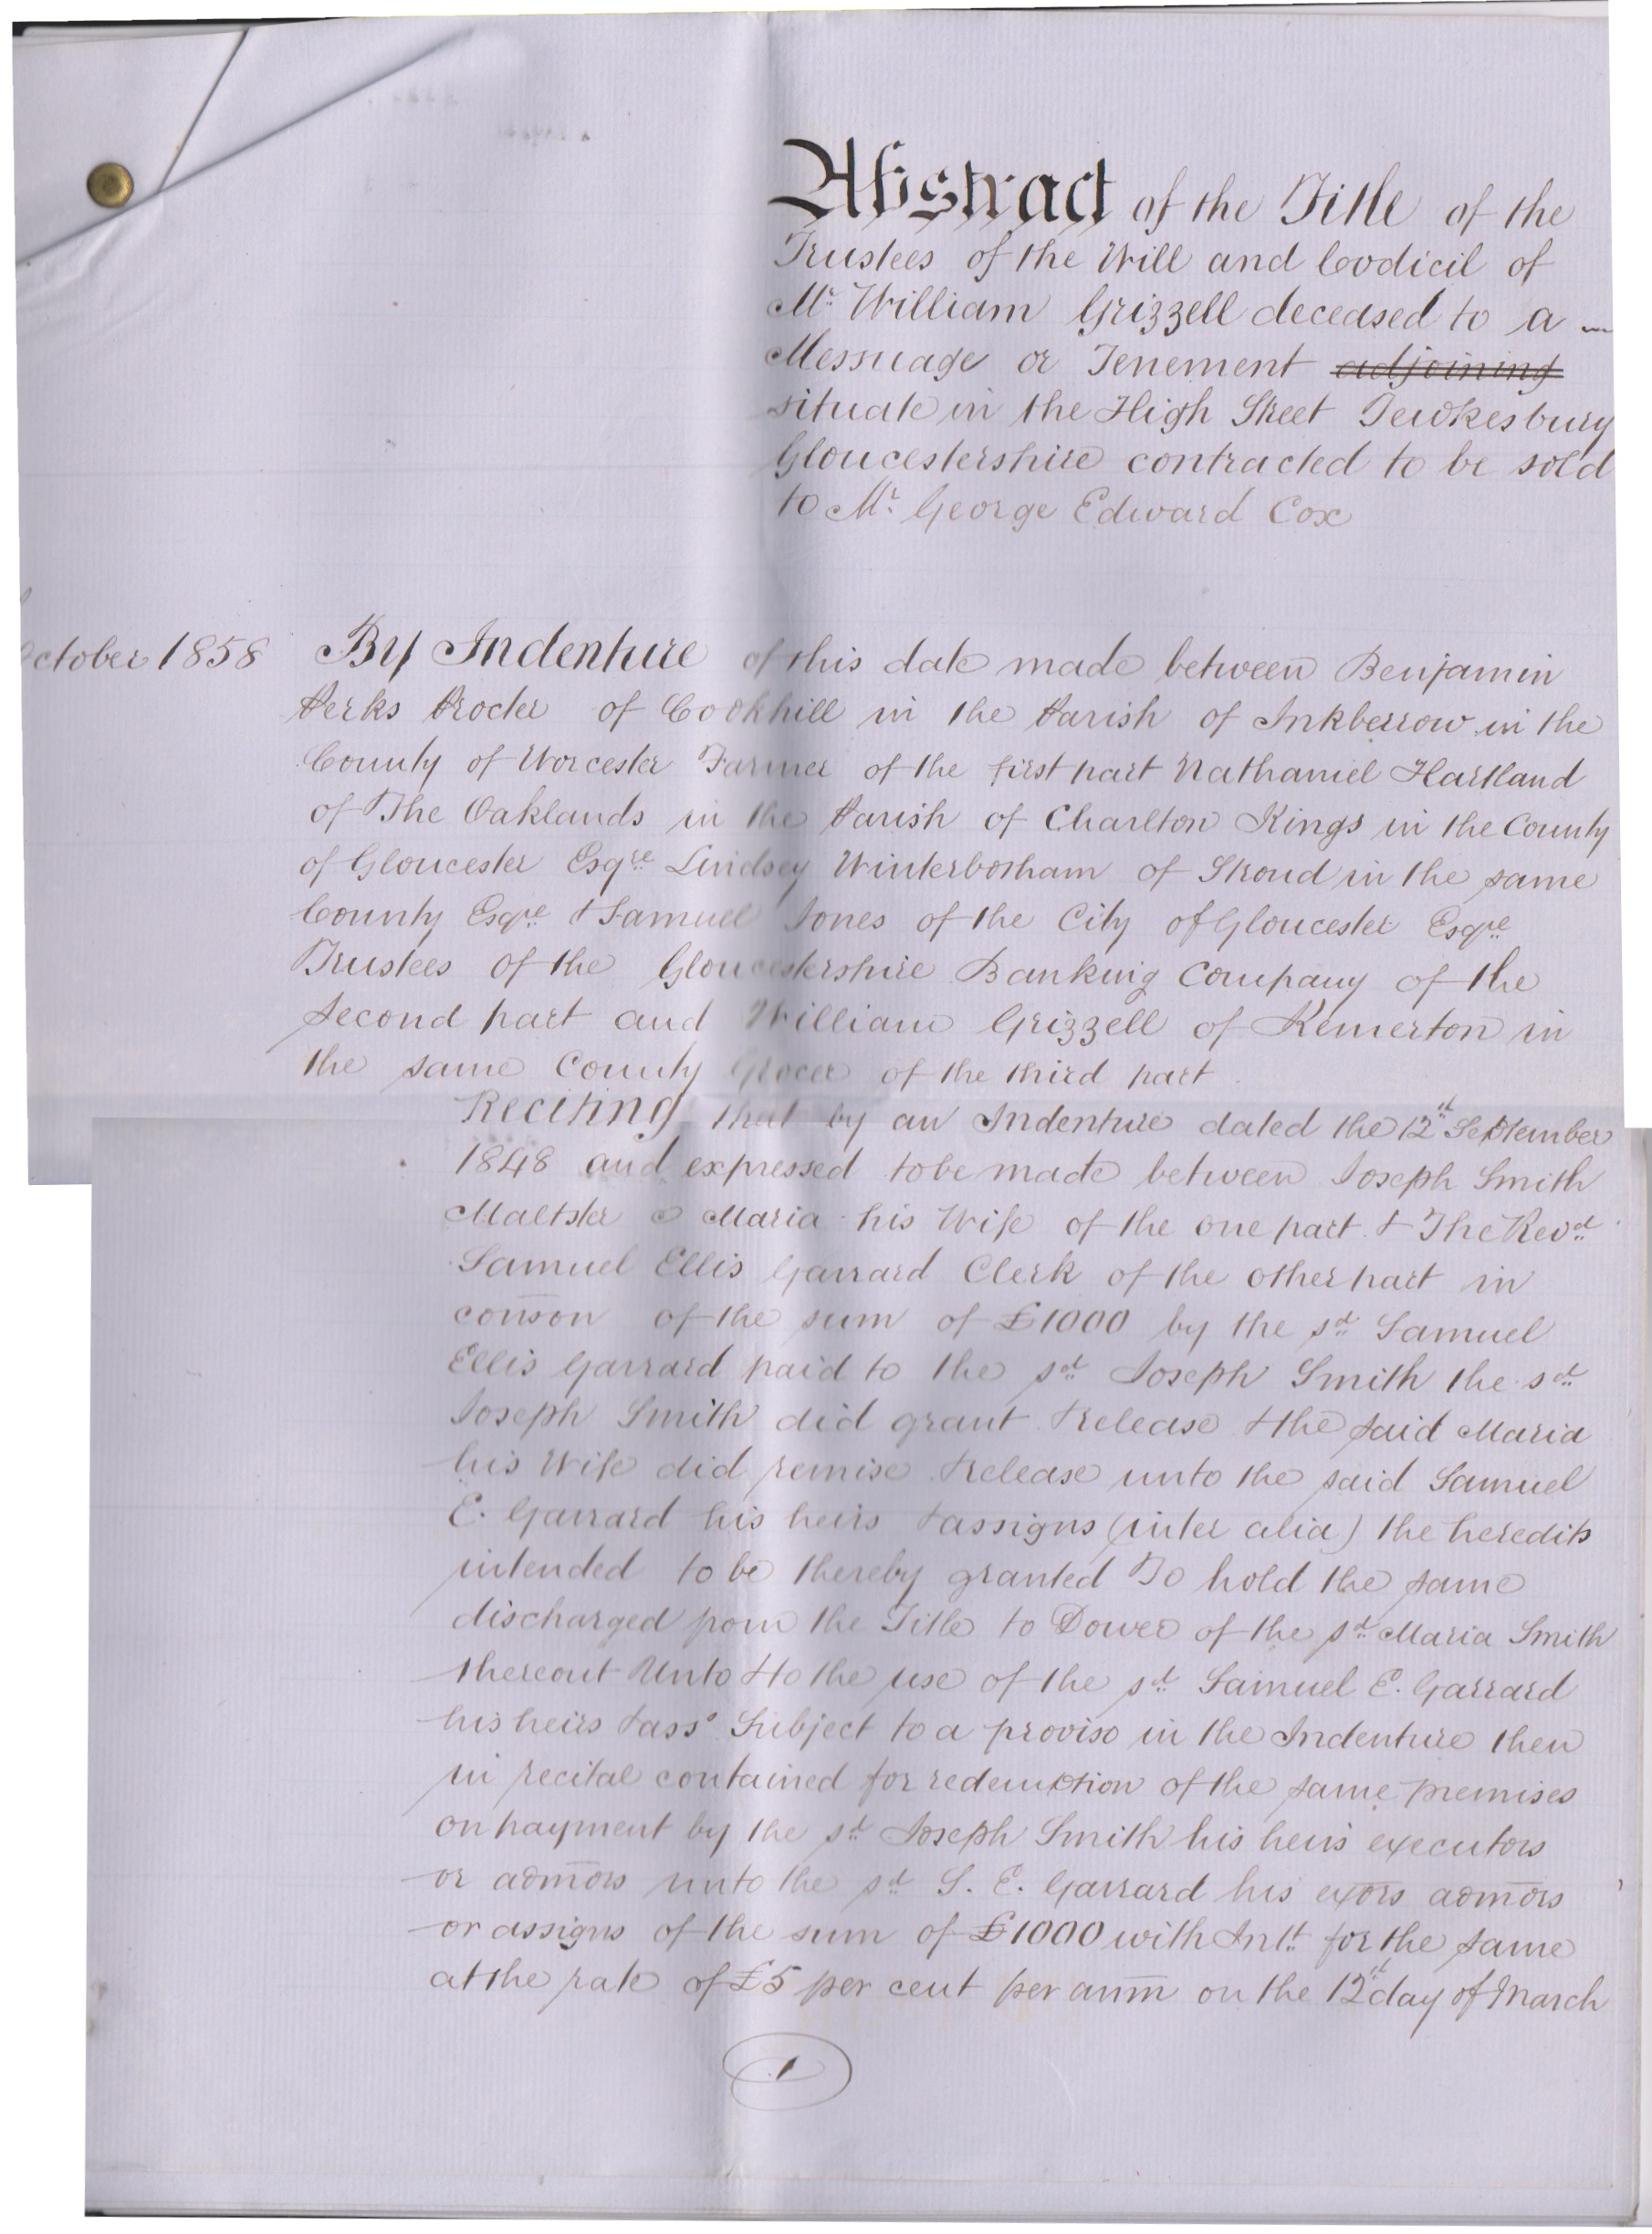 Abstract of the Title of the
Trustees of the Will and Codicil of
Mr. William Grizzell deceased to a
Messuage or Tenement ~~adjoining~~
situate in the High Street Tewkesbury
Gloucestershire contracted to be sold
to Mr. George Edward Cox
ctober 1858 By Indenture of this date made between Benjamin
Perks Procter of Cookhill in the Parish of Inkberrow in the
County of Worcester Farmer of the first part Nathaniel Hartland
of The Oaklands in the Parish of Charlton Kings in the County
of Gloucester Esqre Lindsey Winterbotham of Stroud in the same
County Esqre & Samuel Jones of the City of Gloucester Esqre
Trustees of the Gloucestershire Banking Company of the
second part and William Grizzell of Kemerton in
the same County Grocer of the third part
Reciting that by an Indenture dated the 12th September
1848 and expressed to be made between Joseph Smith
Maltster & Maria his Wife of the one part & The Revd
Samuel Ellis Garrard Clerk of the other part in
conson of the sum of £1000 by the sd Samuel
Ellis Garrard paid to the sd Joseph Smith the sd
Joseph Smith did grant & release & the said Maria
his Wife did remise & release unto the said Samuel
E. Garrard his heirs & assigns (inter alia) the heredits
intended to be thereby granted To hold the same
discharged from the Title to Dower of the sd Maria Smith
thereout Unto & to the use of the sd Samuel E. Garrard
his heirs & asss Subject to a proviso in the Indenture then
in recital contained for redemption of the same premises
on payment by the sd Joseph Smith his heirs executors
or admors unto the sd S. E. Garrard his exors admors
or assigns of the sum of £1000 with Intt for the same
at the rate of £5 per cent per annm on the 12th day of March
1